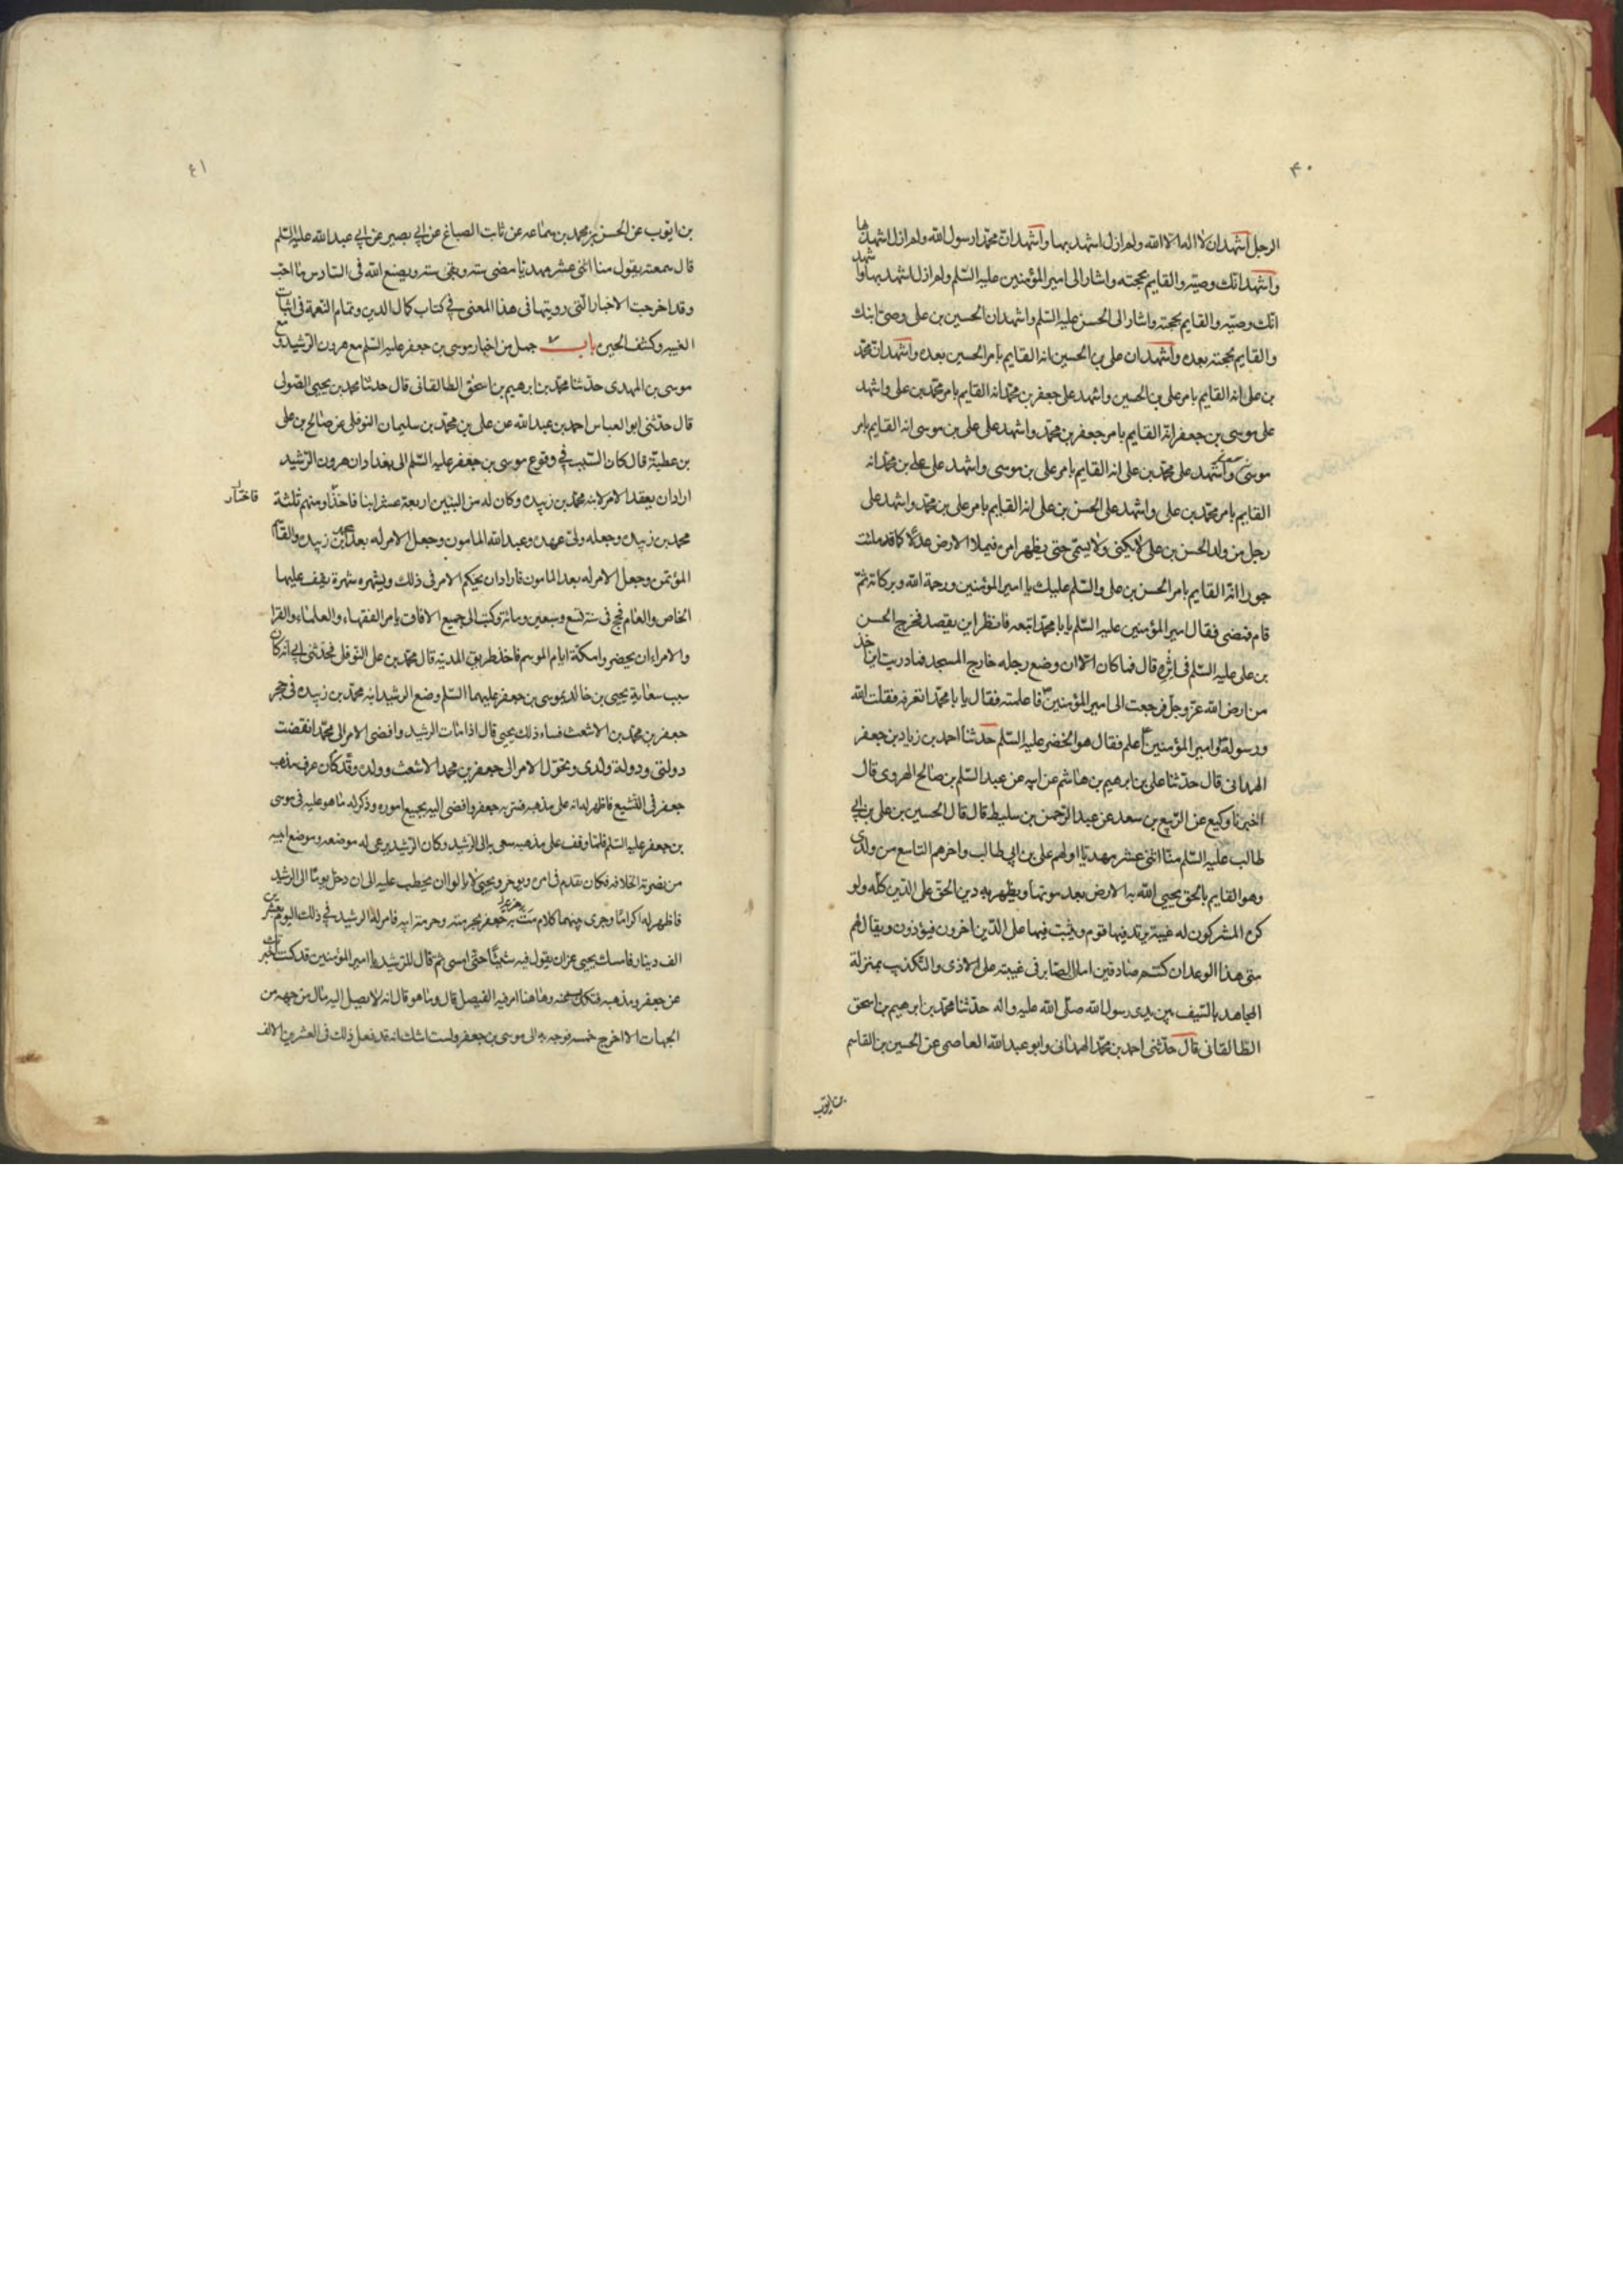 ٤٠
الرجل اشهد ان لا اله الا الله ولم ازل اشهد بها واشهد ان محمدا رسول الله ولم ازل اشهد بها
واشهد انك وصيه والقايم بحجته واشار الى امير المؤمنين عليه السلم ولم ازل اشهد بها واشهد
انك وصيه والقايم بحجته واشار الى الحسن عليه السلم واشهد ان الحسين بن على وصى ابنك
والقايم بحجته بعده واشهد ان على بن الحسين انه القايم بامر الحسين بعده واشهد ان محمد
بن على انه القايم بامر على بن الحسين واشهد على جعفر بن محمد انه القايم بامر محمد بن على واشهد
على موسى بن جعفر انه القايم بامر جعفر بن محمد واشهد على على بن موسى انه القايم بامر
موسى واشهد على محمد بن على انه القايم بامر على بن موسى واشهد على على بن محمد انه
القايم بامر محمد بن على واشهد على الحسن بن على انه القايم بامر على بن محمد واشهد على
رجل من ولد الحسن بن على لا يكنى ولا يسمى حتى يظهر امره فيملأ الارض عدلا كما قد ملئت
جورا انه القايم بامر الحسن بن على والسلم عليك يا امير المؤمنين ورحمة الله وبركاته ثم
قام فمضى فقال امير المؤمنين عليه السلم يا با محمد اتبعه فانظر اين يقصد فخرج الحسن
بن على عليه السلم فى اثره قال فما كان الا ان وضع رجله خارج المسجد فما دريت اين اخذ
من ارض الله عز وجل فرجعت الى امير المؤمنين ع فاعلمته فقال يا با محمد اتعرفه فقلت الله
ورسوله وامير المؤمنين اعلم فقال هو الخضر عليه السلم حدثنا احمد بن زياد بن جعفر
الهمدانى قال حدثنا على بن ابرهيم بن هاشم عن ابيه عن عبد السلم بن صالح الهروى قال
اخبرنا وكيع عن الربيع بن سعد عن عبد الرحمن بن سليط قال قال الحسين بن على بن ابي
طالب عليه السلم منا اثنى عشر مهديا اولهم على بن ابي طالب واخرهم التاسع من ولدى
وهو القايم بالحق يحيى الله به الارض بعد موتها ويظهر به دين الحق على الدين كله ولو
كره المشركون له غيبة يرتد فيها قوم ويثبت فيها على الدين اخرون فيؤذون ويقال لهم
متى هذا الوعد ان كنتم صادقين اما ان الصابر فى غيبته على الاذى والتكذيب بمنزلة
المجاهد بالسيف بين يدى رسول الله صلى الله عليه واله حدثنا محمد بن ابرهيم بن اسحق
الطالقانى قال حدثنى احمد بن محمد الهمدانى وابو عبد الله العاصمى عن الحسين بن القاسم
بن ايوب
٤١
بن ايوب عن الحسن بن محمد بن سماعه عن ثابت الصباغ عن ابي بصير عن ابي عبد الله عليه السلم
قال سمعته يقول منا اثنى عشر مهديا مضى سته وبقى سته ويصنع الله فى السادس ما احب
وقد اخرجت الاخبار التى رويتها فى هذا المعنى فى كتاب كمال الدين وتمام النعمة فى اثبات
الغيبه وكشف الحيره باب ٧ جمل من اخبار موسى بن جعفر عليه السلم مع هرون الرشيد ومع
موسى بن المهدى حدثنا محمد بن ابرهيم بن اسحق الطالقانى قال حدثنا محمد بن يحيى الصولى
قال حدثنى ابو العباس احمد بن عبد الله عن على بن محمد بن سليمان النوفلى عن صالح بن على
بن عطية قال كان السبب فى وقوع موسى بن جعفر عليه السلم الى بغداد ان هرون الرشيد
اراد ان يعقد الامر لابنه محمد بن زبيده وكان له من البنين اربعة عشر ابنا فاختار منهم ثلثة
فاختار
محمد بن زبيده وجعله ولى عهده وعبد الله المامون وجعل الامر له بعد ابن زبيده والقاسم
المؤتمن وجعل الامر له بعد المامون فاراد ان يحكم الامر فى ذلك ويشهره شهرة يقف عليها
الخاص والعام فحج فى سنة تسع وسبعين ومائة وكتب الى جميع الافاق يامر الفقهاء والعلماء والقرا
والامراء ان يحضروا مكة ايام الموسم فاخذ طريق المدينه قال محمد بن على النوفلى فحدثنى ابي انه كان
سبب سعاية يحيى بن خالد بموسى بن جعفر عليهما السلم وضع الرشيد ابنه محمد بن زبيده فى حجر
جعفر بن محمد بن الاشعث فساء ذلك يحيى قال اذا مات الرشيد وافضى الامر الى محمد انقضت
دولتى ودولة ولدى وتحول الامر الى جعفر بن محمد الاشعث وولده وقد كان عرف مذهب
جعفر فى التشيع فاظهر له انه على مذهبه فسر به جعفر وافضى اليه بجميع اموره وذكر له ما هو عليه فى موسى
بن جعفر عليه السلم فلما وقف على مذهبه سعى به الى الرشيد وكان الرشيد يرعى له موضعه وموضع ابيه
من نصرة الخلافه فكان يقدم فى امره ويوخر ويحيى لا يالوا ان يحطب عليه الى ان دخل يوما الى الرشيد
فاظهر له اكراما وجرى بينهما كلام مت به جعفر بحرمته وحرمة ابيه فامر له الرشيد فى ذلك اليوم بعشرين
الف دينار فامسك يحيى عن ان يقول فيه شيئا حتى امسى ثم قال للرشيد يا امير المؤمنين قد كنت اخبرتك
عن جعفر ومذهبه فتكذب عنه وهاهنا امر فيه الفيصل قال وما هو قال انه لا يصل اليه مال من جهه من
الجهات الا اخرج خمسه فوجه به الى موسى بن جعفر ولست اشك انه قد فعل ذلك فى العشرين الالف